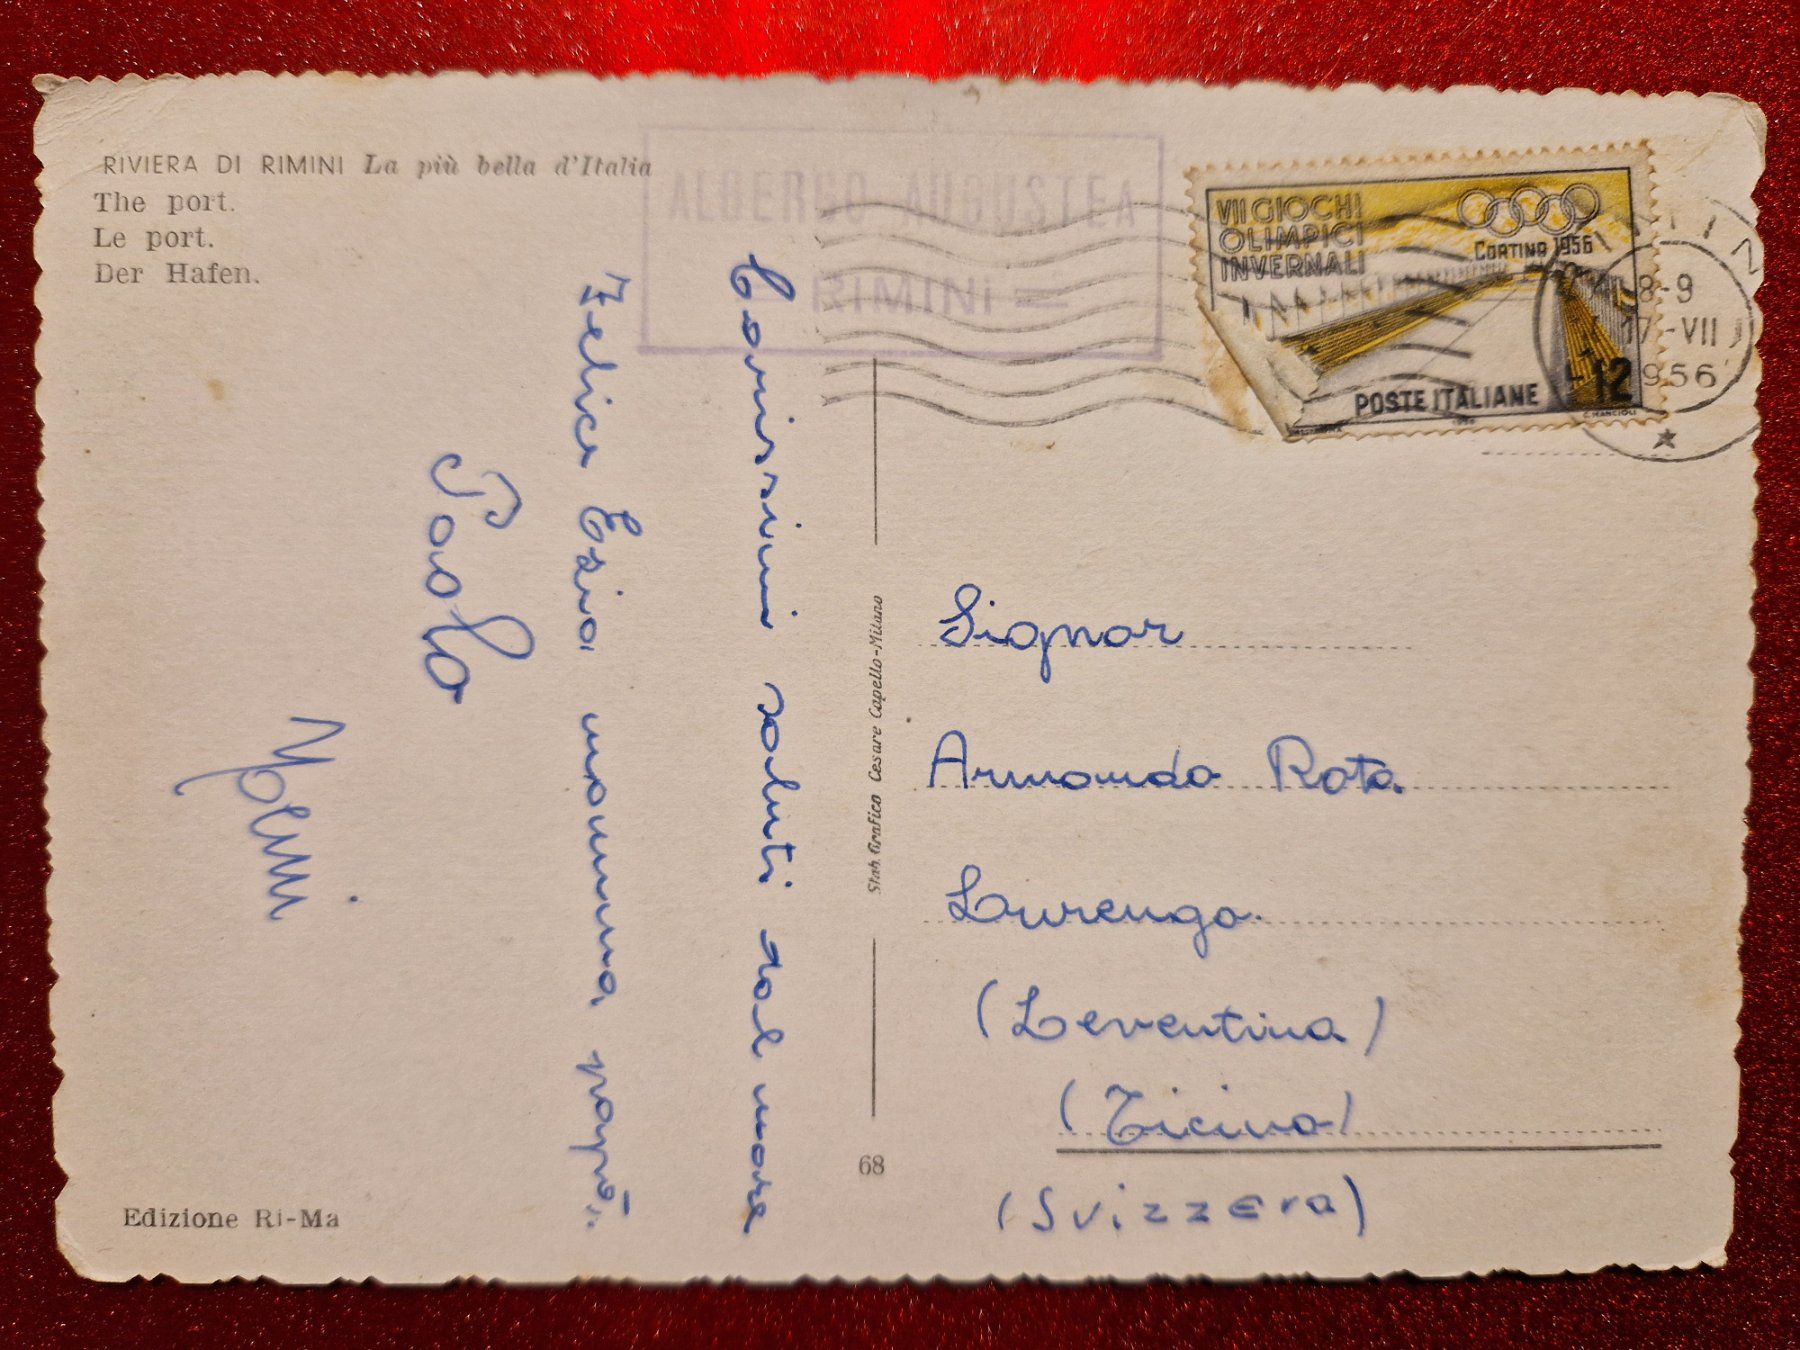 RIVIERA DI RIMINI La più bella d'Italia
The port.
Le port.
Der Hafen.
ALBERGO AUGUSTEA
= RIMINI =
VII GIOCHI
OLIMPICI
INVERNALI
CORTINA 1956
POSTE ITALIANE
12
C. MANCIOLI
8-9
17-VII
1956
Carissimi saluti dal mare
Felice Ezia mamma papà.
Paolo
Stab. Grafico Cesare Capello-Milano
68
Signor
Armando Rota
Lurengo
(Leventina)
(Ticino)
(Svizzera)
Edizione Ri-Ma